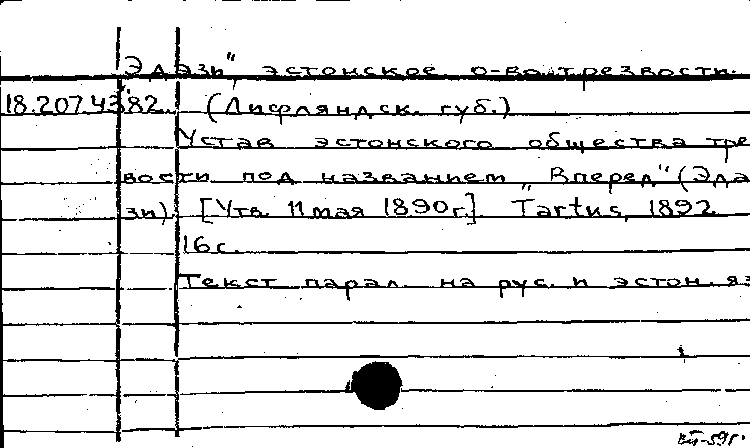 Эдази", эстонское о-во трезвости.
18.207.4382. (Лифляндск. губ.)
Устав эстонского общества тре
вости под названием „Вперед" (Эда
зи). [Утв. 11 мая 1890 г.]. Tartus, 1892
16 с.
Текст парал. на рус. и эстон. яз